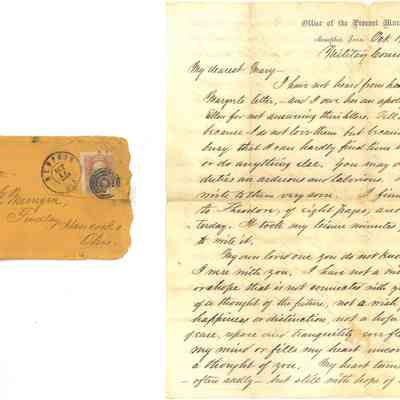 MEMPHIS
OCT
Findlay
Hancock Co
Ohio.
Office of the Provost Mar
Memphis, Tenn. Oct. 1
Military Comm
My dearest Mary—
I have not heard from ho
letter,—and I owe her an apol
letter for not answering their letters. Tell
because I do not love them but because
busy that I can hardly find time to
or do anything else. You may
duties are arduous and laborious.
write to them very soon. I fin
to Theodore, of eight pages, and
today. It took my leisure minutes,
to write it.
My own loved one you do not kno
I were with you. I have not a
or a hope that is not connected with y
of a thought of the future, not a wish
happiness or distinction, not a hope
of ease, and tranquility
my mind or fills my heart uncon
a thought of you. My heart turns
—often sadly—but still with hope of